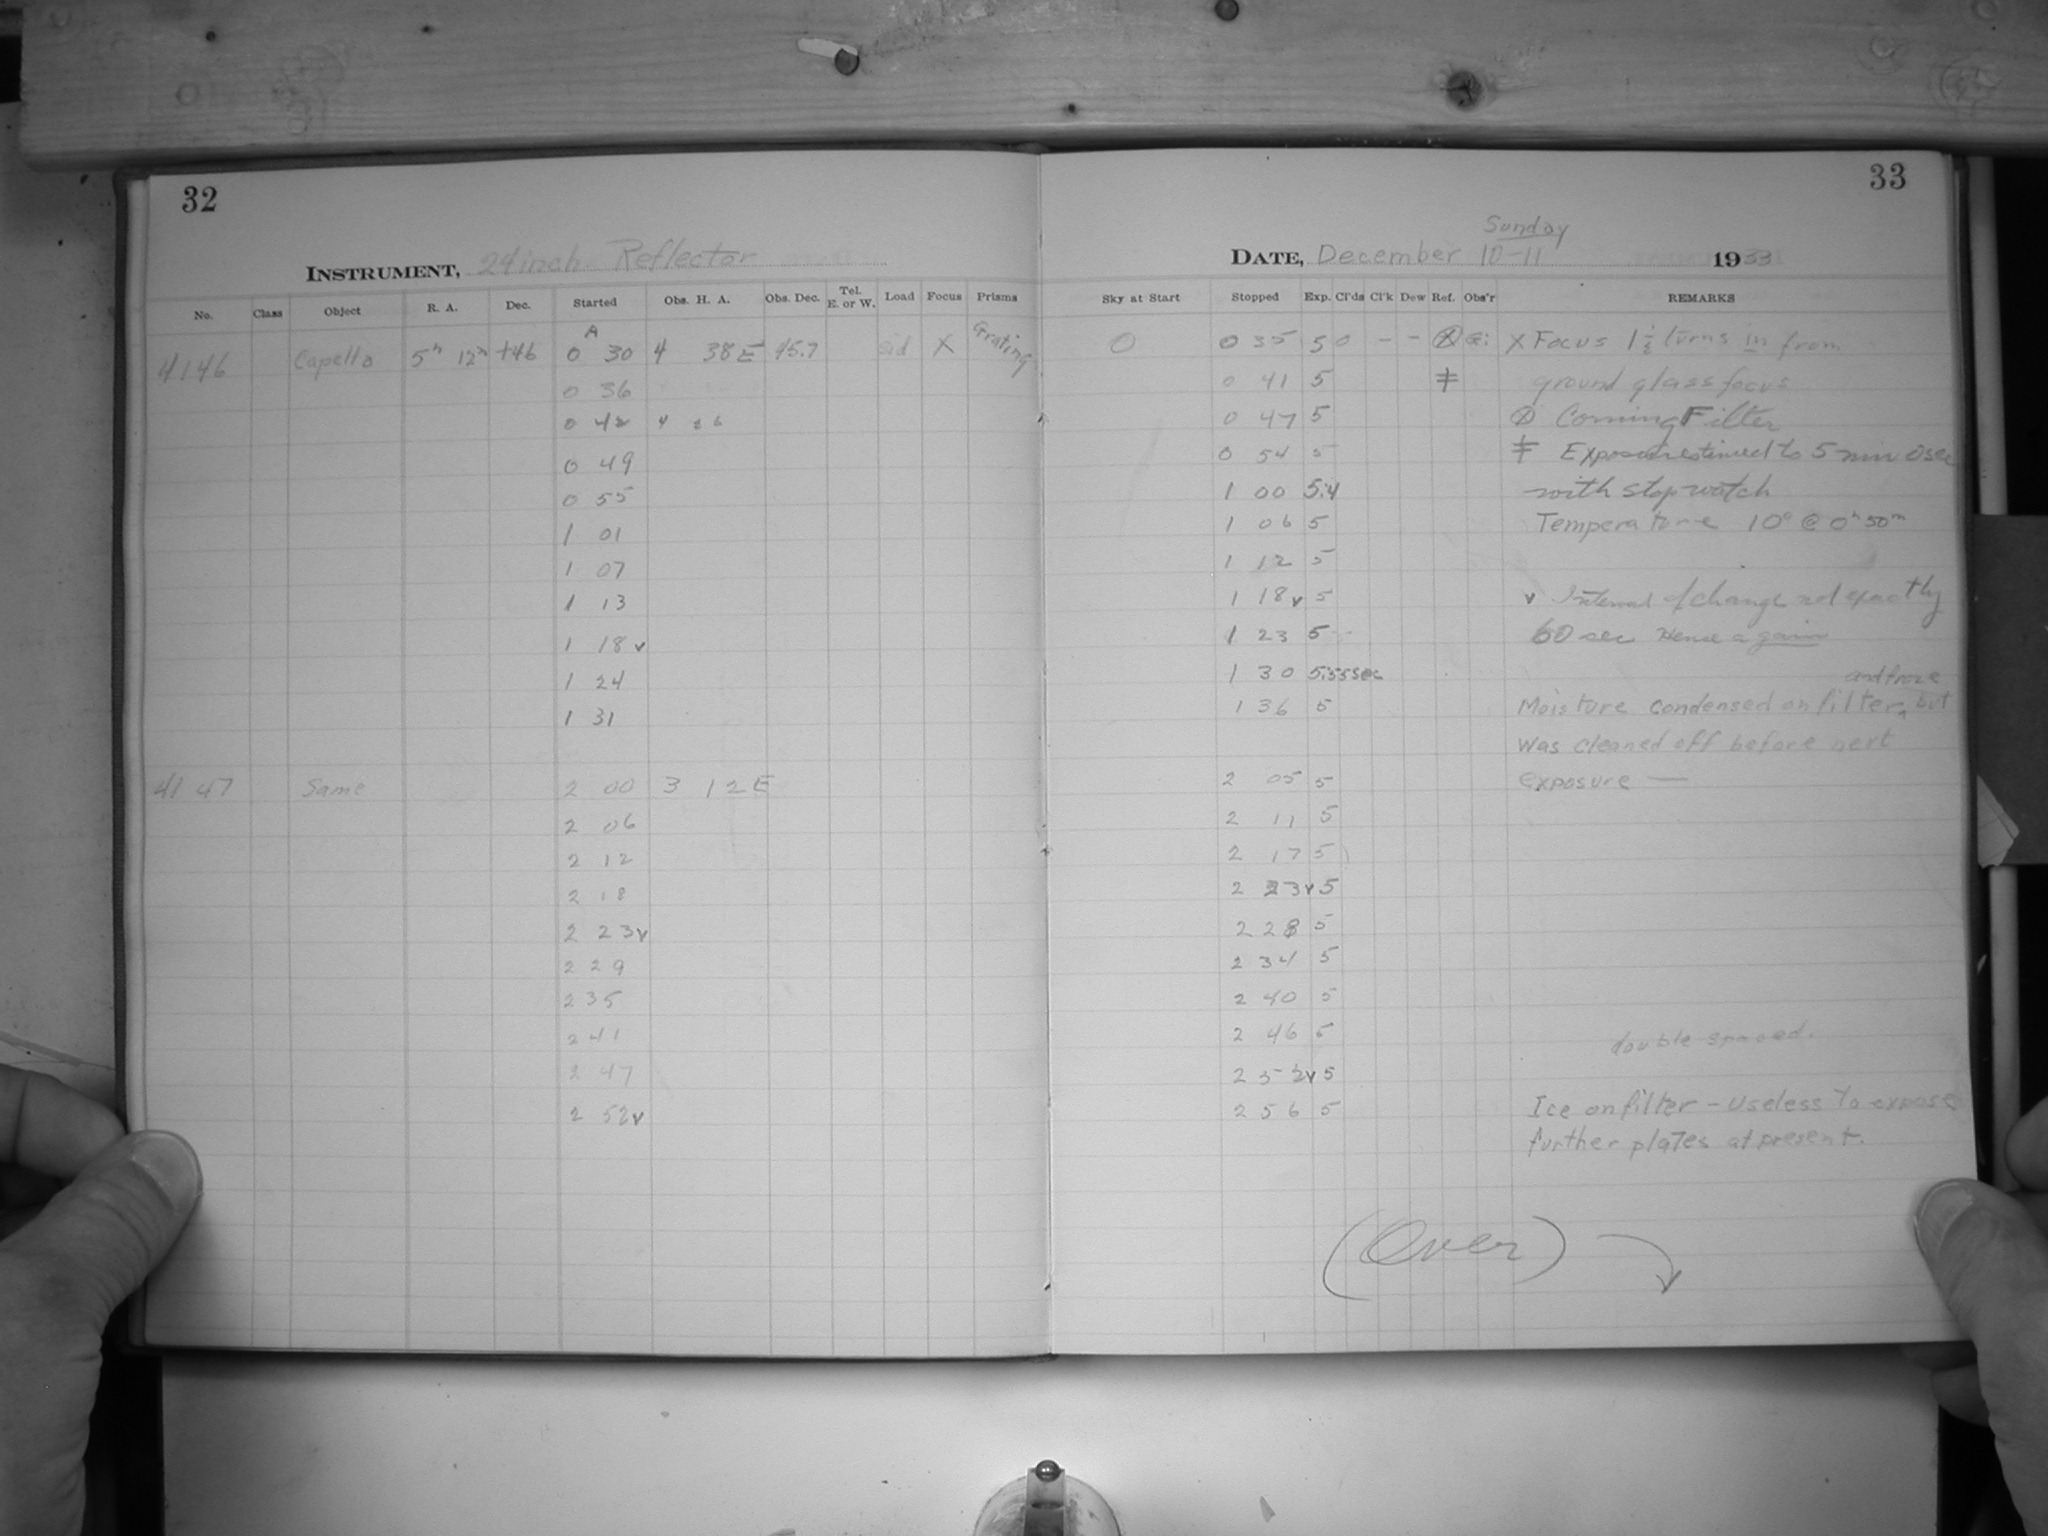 32
INSTRUMENT, 24 inch Reflector
No. Class Object R. A. Dec. Started Obs. H. A. Obs. Dec. Tel. E. or W. Load Focus Prisms
4146 Capella 5h 12m +46 A 0 30 4 38 E 45.7 sid X Grating
0 36
0 42 4 26
0 49
0 55
1 01
1 07
1 13
1 18 v
1 24
1 31
4147 Same 2 00 3 12 E
2 06
2 12
2 18
2 23 v
2 29
2 35
2 41
2 47
2 52 v
33
Sunday
DATE, December 10-11 1933
Sky at Start Stopped Exp. Cl'ds Cl'k Dew Ref. Obs'r REMARKS
0 0 35 5 0 - - ⊗ X Focus 1 1/2 turns in from
0 41 5 ‡ ground glass focus
0 47 5 ⊗ Corning Filter
0 54 5 ‡ Exposures timed to 5 min 0 sec
1 00 5:4 with stop watch
1 06 5 Temperature 10° @ 0h 50m
1 12 5
1 18 v 5 v Interval of change not exactly
1 23 5 60 sec Hence a gain
1 30 5:35 sec and froze
1 36 5 Moisture condensed on filter, but
was cleaned off before next
2 05 5 exposure —
2 11 5
2 17 5
2 23 v 5
2 28 5
2 34 5
2 40 5
2 46 5 double spaced.
2 52 v 5
2 56 5 Ice on filter - Useless to expose
further plates at present.
(Over)